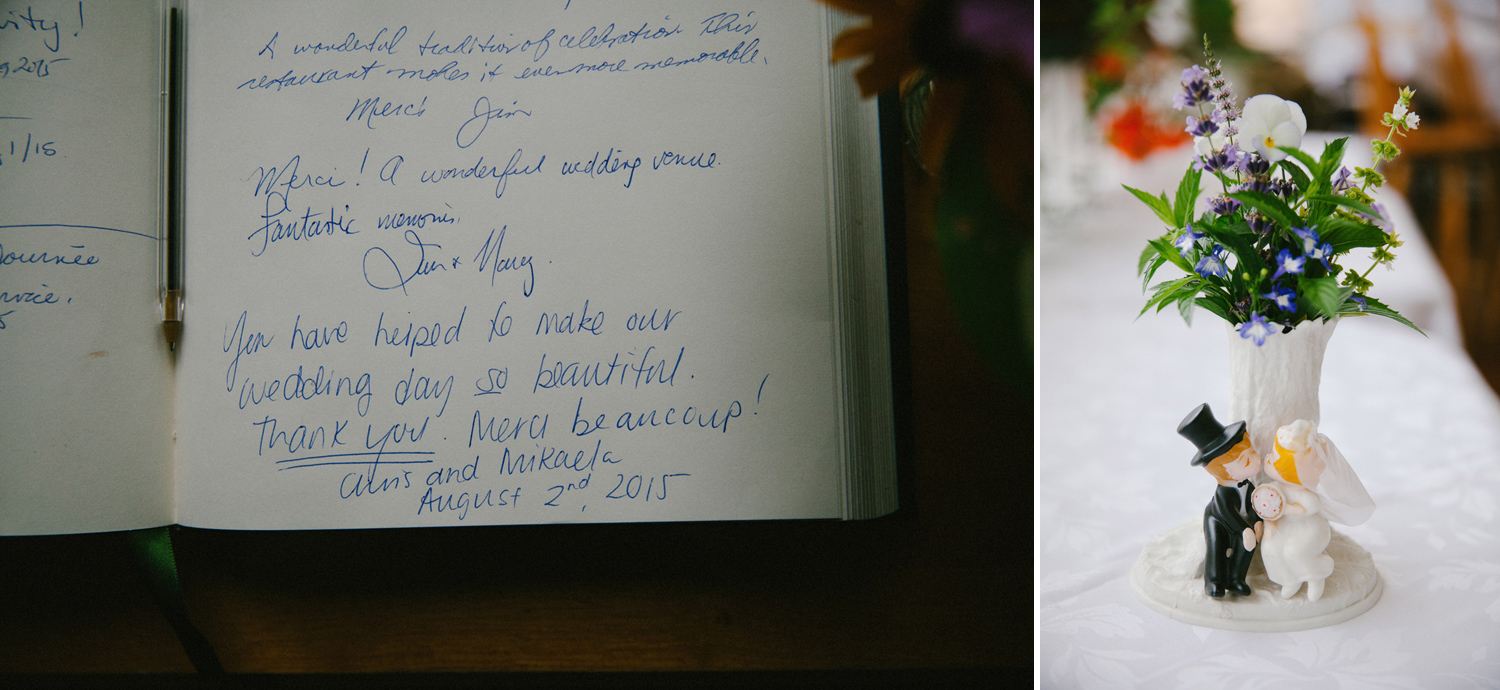 vity!
2015
1/15
ournée
rvice.
5
A wonderful tradition of celebration This
restaurant makes it even more memorable.
Merci Jim
Merci! A wonderful wedding venue.
Fantastic memories.
Jim + Nancy.
You have helped to make our
wedding day so beautiful.
Thank you. Merci beaucoup!
Chris and Mikaela
August 2nd, 2015